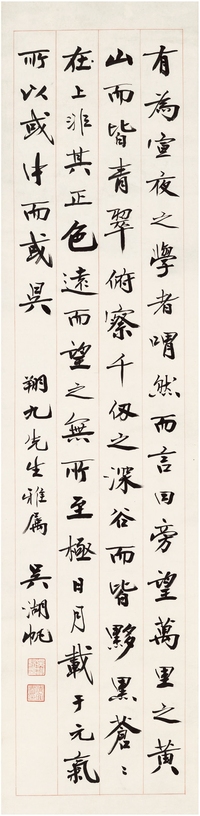 有為宣夜之學者喟然而言曰旁望萬里之黃
山而皆青翠俯察千仞之深谷而皆黝黑蒼〻
在上非其正色遠而望之無所至極日月載于元氣
所以或中而或異
翔九先生雅屬
吳湖帆